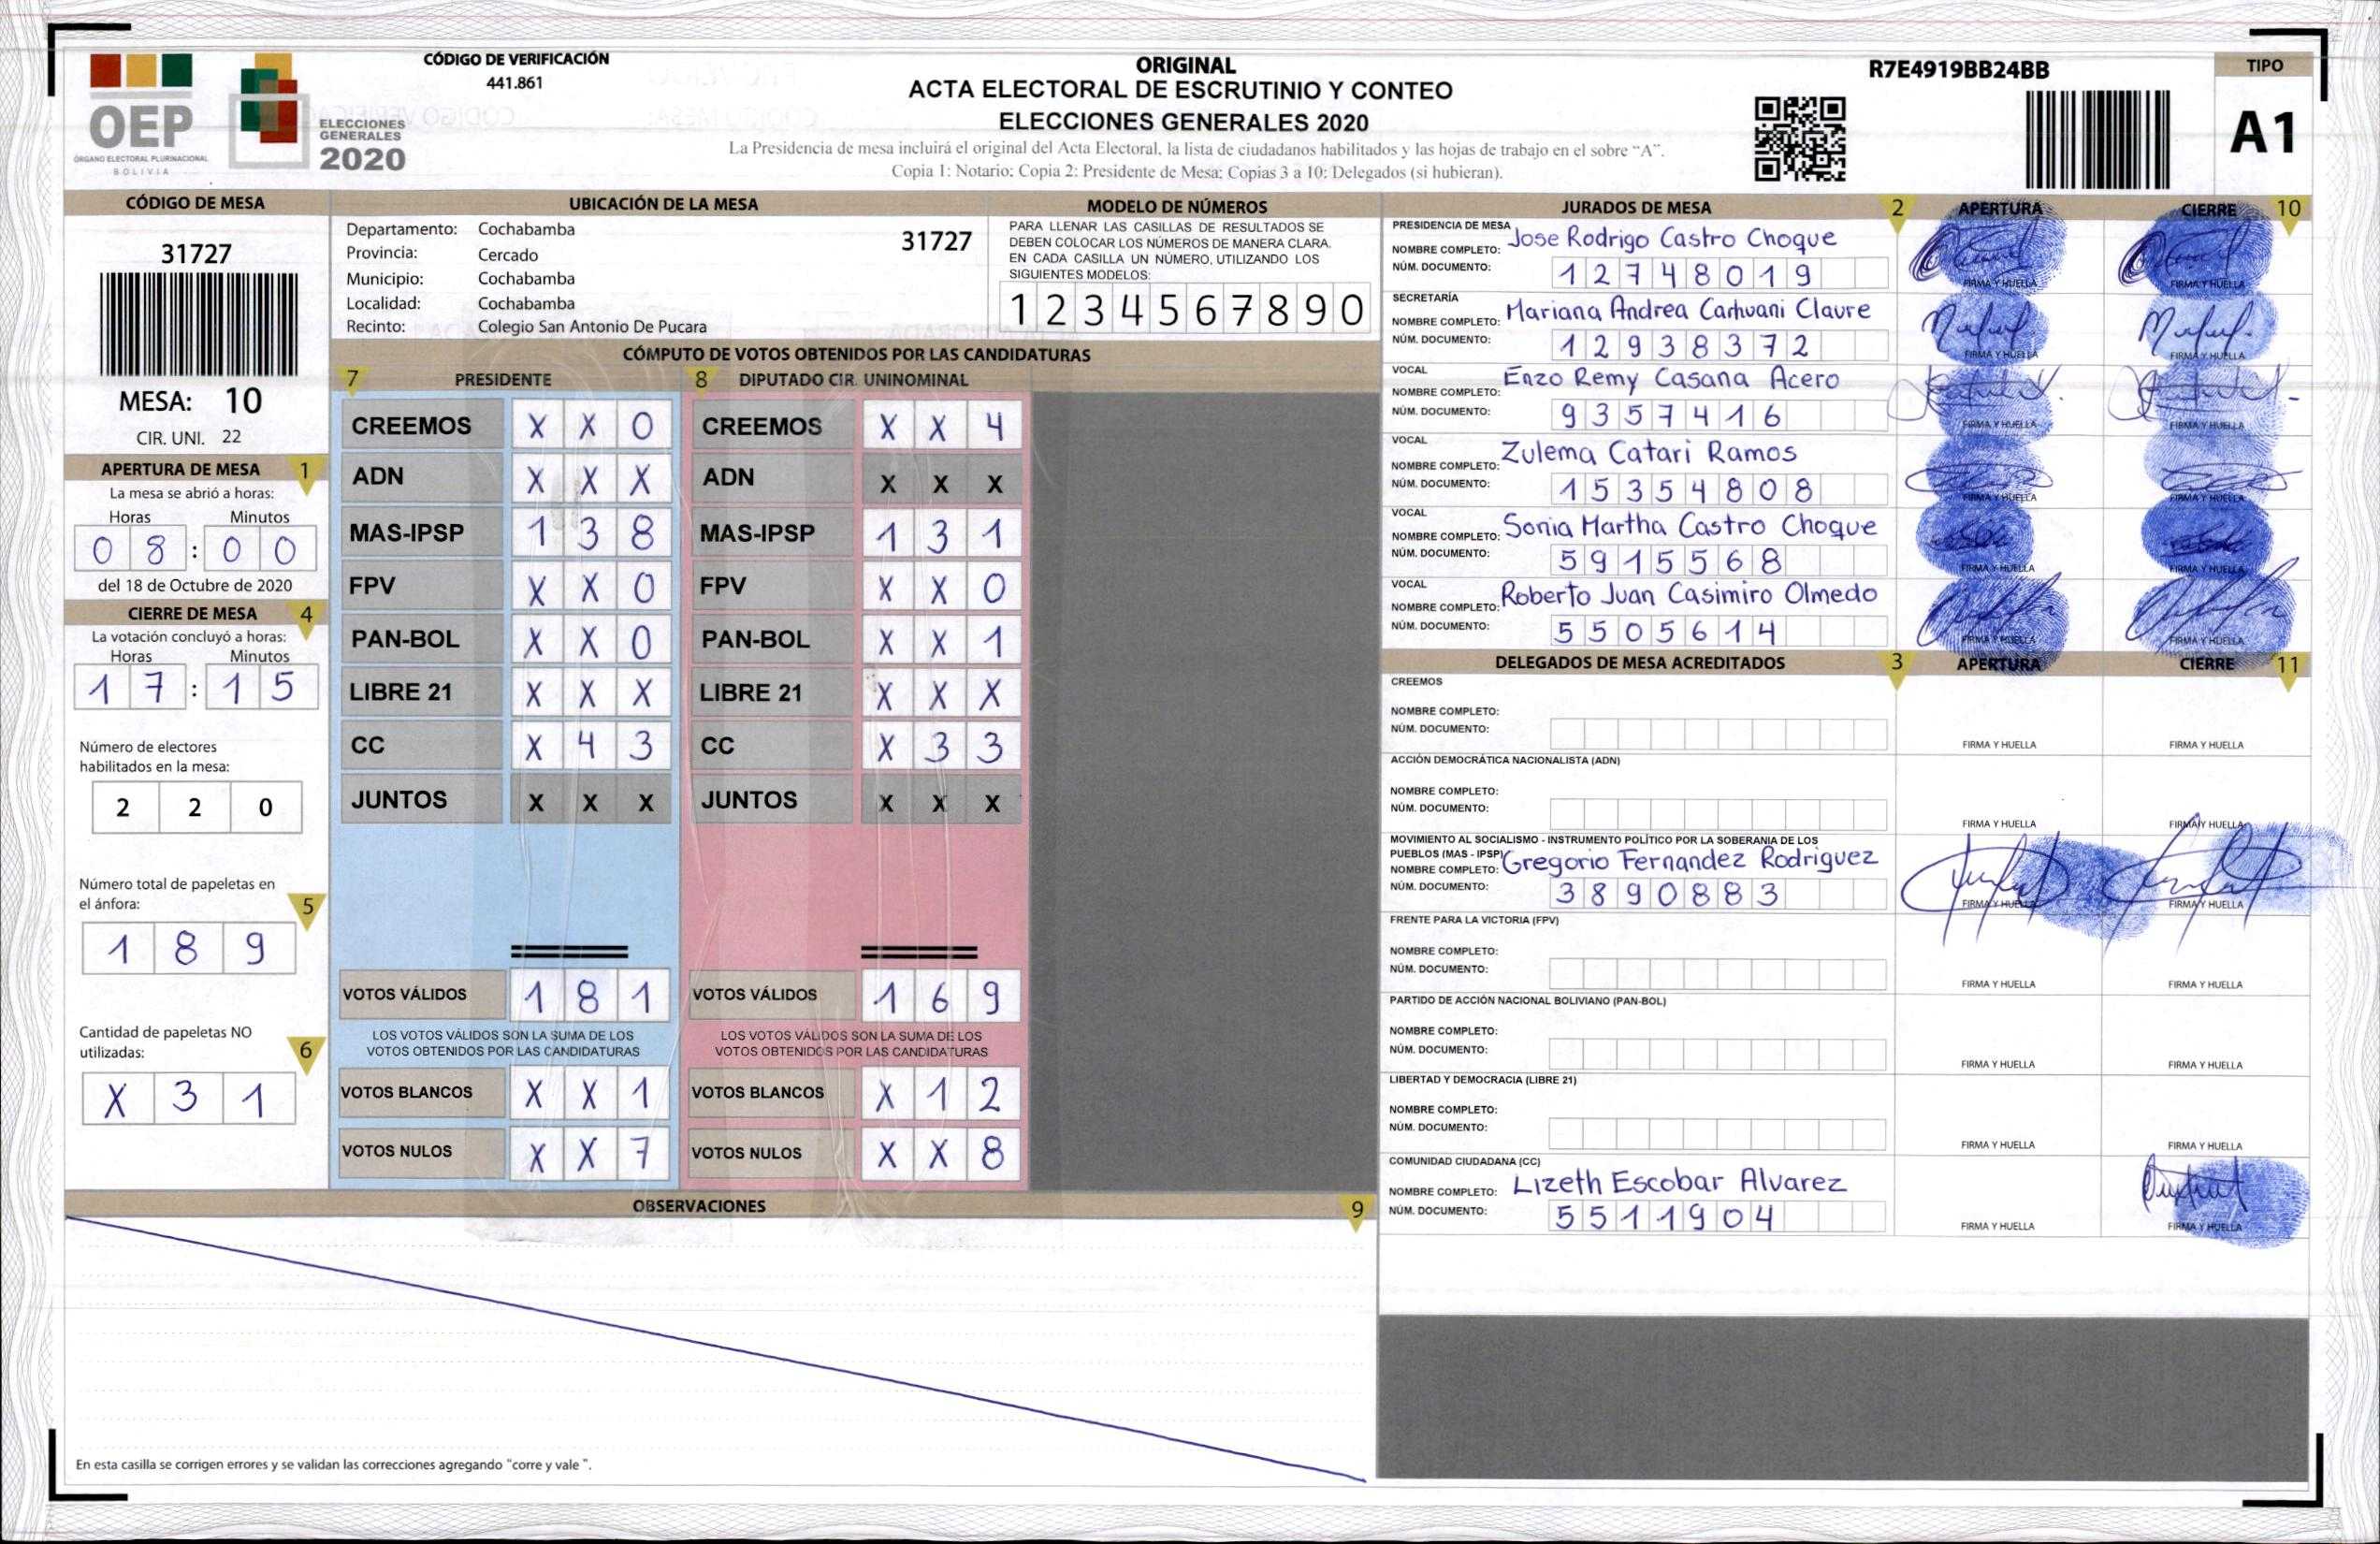 OEP
ÓRGANO ELECTORAL PLURINACIONAL
BOLIVIA
ELECCIONES
GENERALES
2020
CÓDIGO DE VERIFICACIÓN
441.861
ORIGINAL
ACTA ELECTORAL DE ESCRUTINIO Y CONTEO
ELECCIONES GENERALES 2020
La Presidencia de mesa incluirá el original del Acta Electoral, la lista de ciudadanos habilitados y las hojas de trabajo en el sobre "A".
Copia 1: Notario; Copia 2: Presidente de Mesa; Copias 3 a 10: Delegados (si hubieran).
R7E4919BB24BB
TIPO
A1
CÓDIGO DE MESA
31727
MESA: 10
CIR. UNI. 22
APERTURA DE MESA 1
La mesa se abrió a horas:
Horas Minutos
0 8 : 0 0
del 18 de Octubre de 2020
CIERRE DE MESA 4
La votación concluyó a horas:
Horas Minutos
1 7 : 1 5
Número de electores
habilitados en la mesa:
2 2 0
Número total de papeletas en
el ánfora: 5
1 8 9
Cantidad de papeletas NO
utilizadas: 6
X 3 1
UBICACIÓN DE LA MESA
Departamento: Cochabamba 31727
Provincia: Cercado
Municipio: Cochabamba
Localidad: Cochabamba
Recinto: Colegio San Antonio De Pucara
MODELO DE NÚMEROS
PARA LLENAR LAS CASILLAS DE RESULTADOS SE
DEBEN COLOCAR LOS NÚMEROS DE MANERA CLARA.
EN CADA CASILLA UN NÚMERO, UTILIZANDO LOS
SIGUIENTES MODELOS:
1 2 3 4 5 6 7 8 9 0
CÓMPUTO DE VOTOS OBTENIDOS POR LAS CANDIDATURAS
7 PRESIDENTE 8 DIPUTADO CIR. UNINOMINAL
CREEMOS X X 0 CREEMOS X X 4
ADN X X X ADN X X X
MAS-IPSP 1 3 8 MAS-IPSP 1 3 1
FPV X X 0 FPV X X 0
PAN-BOL X X 0 PAN-BOL X X 1
LIBRE 21 X X X LIBRE 21 X X X
CC X 4 3 CC X 3 3
JUNTOS X X X JUNTOS X X X
VOTOS VÁLIDOS 1 8 1 VOTOS VÁLIDOS 1 6 9
LOS VOTOS VÁLIDOS SON LA SUMA DE LOS LOS VOTOS VÁLIDOS SON LA SUMA DE LOS
VOTOS OBTENIDOS POR LAS CANDIDATURAS VOTOS OBTENIDOS POR LAS CANDIDATURAS
VOTOS BLANCOS X X 1 VOTOS BLANCOS X 1 2
VOTOS NULOS X X 7 VOTOS NULOS X X 8
OBSERVACIONES 9
En esta casilla se corrigen errores y se validan las correcciones agregando "corre y vale ".
JURADOS DE MESA 2 APERTURA CIERRE 10
PRESIDENCIA DE MESA
NOMBRE COMPLETO: Jose Rodrigo Castro Choque
NÚM. DOCUMENTO: 1 2 7 4 8 0 1 9
FIRMA Y HUELLA FIRMA Y HUELLA
SECRETARÍA
NOMBRE COMPLETO: Mariana Andrea Carhuani Claure
NÚM. DOCUMENTO: 1 2 9 3 8 3 7 2
FIRMA Y HUELLA FIRMA Y HUELLA
VOCAL
NOMBRE COMPLETO: Enzo Remy Casana Acero
NÚM. DOCUMENTO: 9 3 5 7 4 1 6
FIRMA Y HUELLA FIRMA Y HUELLA
VOCAL
NOMBRE COMPLETO: Zulema Catari Ramos
NÚM. DOCUMENTO: 1 5 3 5 4 8 0 8
FIRMA Y HUELLA FIRMA Y HUELLA
VOCAL
NOMBRE COMPLETO: Sonia Martha Castro Choque
NÚM. DOCUMENTO: 5 9 1 5 5 6 8
FIRMA Y HUELLA FIRMA Y HUELLA
VOCAL
NOMBRE COMPLETO: Roberto Juan Casimiro Olmedo
NÚM. DOCUMENTO: 5 5 0 5 6 1 4
FIRMA Y HUELLA FIRMA Y HUELLA
DELEGADOS DE MESA ACREDITADOS 3 APERTURA CIERRE 11
CREEMOS
NOMBRE COMPLETO:
NÚM. DOCUMENTO:
FIRMA Y HUELLA FIRMA Y HUELLA
ACCIÓN DEMOCRÁTICA NACIONALISTA (ADN)
NOMBRE COMPLETO:
NÚM. DOCUMENTO:
FIRMA Y HUELLA FIRMA Y HUELLA
MOVIMIENTO AL SOCIALISMO - INSTRUMENTO POLÍTICO POR LA SOBERANIA DE LOS
PUEBLOS (MAS - IPSP)
NOMBRE COMPLETO: Gregorio Fernandez Rodriguez
NÚM. DOCUMENTO: 3 8 9 0 8 8 3
FIRMA Y HUELLA FIRMA Y HUELLA
FRENTE PARA LA VICTORIA (FPV)
NOMBRE COMPLETO:
NÚM. DOCUMENTO:
FIRMA Y HUELLA FIRMA Y HUELLA
PARTIDO DE ACCIÓN NACIONAL BOLIVIANO (PAN-BOL)
NOMBRE COMPLETO:
NÚM. DOCUMENTO:
FIRMA Y HUELLA FIRMA Y HUELLA
LIBERTAD Y DEMOCRACIA (LIBRE 21)
NOMBRE COMPLETO:
NÚM. DOCUMENTO:
FIRMA Y HUELLA FIRMA Y HUELLA
COMUNIDAD CIUDADANA (CC)
NOMBRE COMPLETO: Lizeth Escobar Alvarez
NÚM. DOCUMENTO: 5 5 1 1 9 0 4
FIRMA Y HUELLA FIRMA Y HUELLA